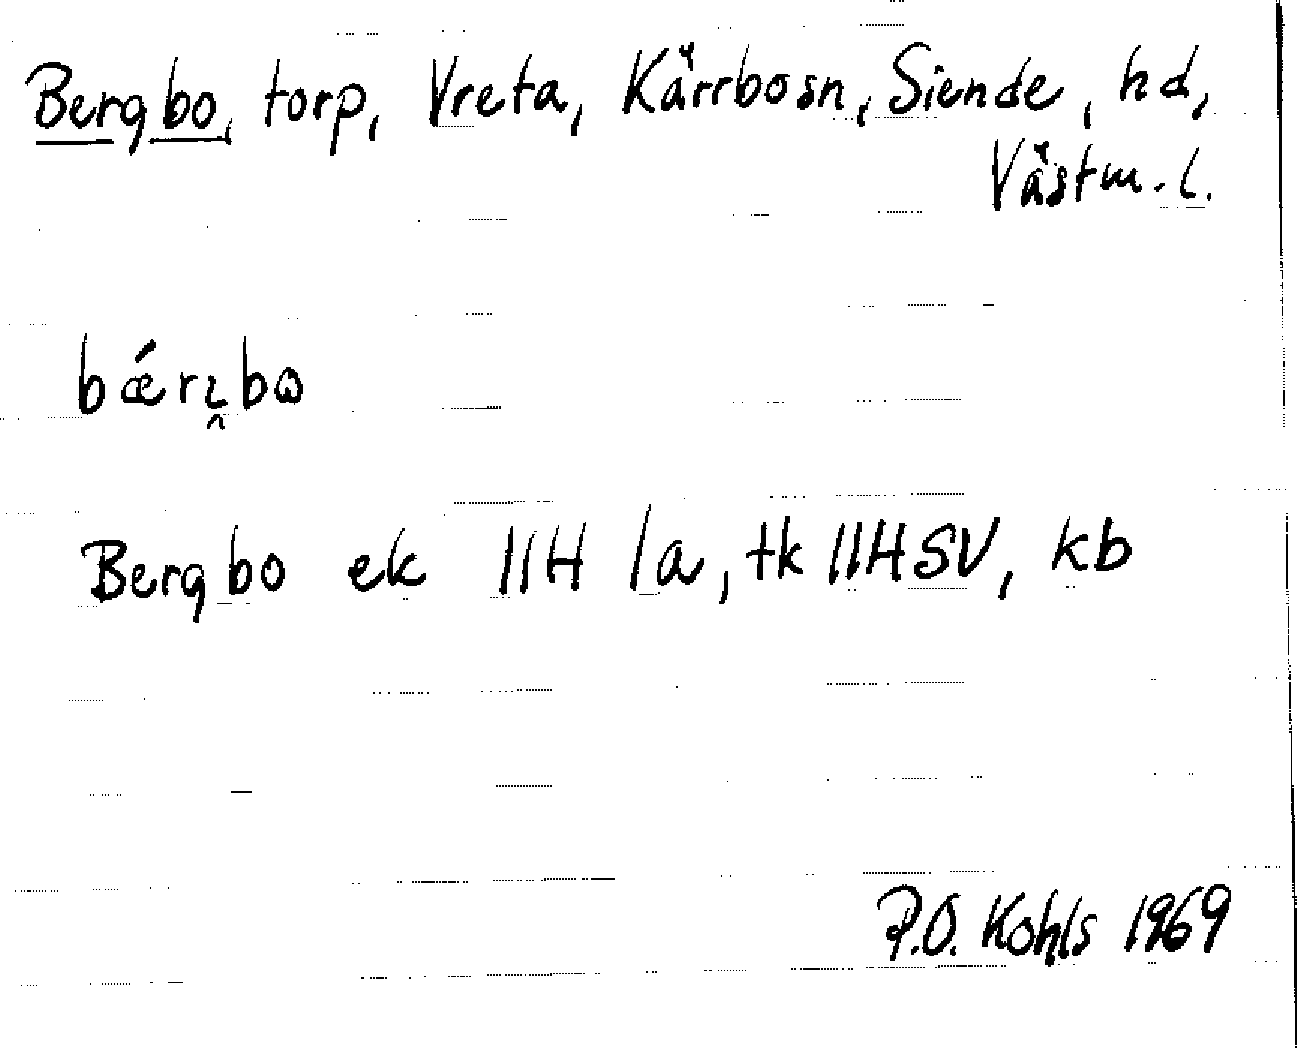 Bergbo, torp, Vreta, Kärrbosn, Siende, hd,
Västm. l.
bǽrı̯bɷ
Bergbo ek 11H 1a, tk 11HSV, kb
P.O. Kohls 1969